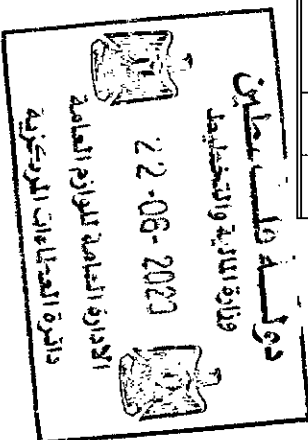 دولة فلسطين
وزارة المالية والتخطيط
22-06-2023
الادارة العامة للوازم العامة
دائرة العطاءات المركزية